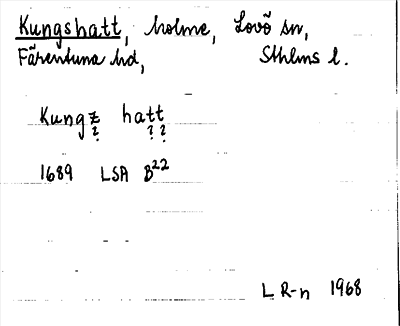 Kungshatt, holme, Lovö sn,
Färentuna hd, Sthlms l.
Kungz hatt
? ? ?
1689 LSA B22
L R-n 1968